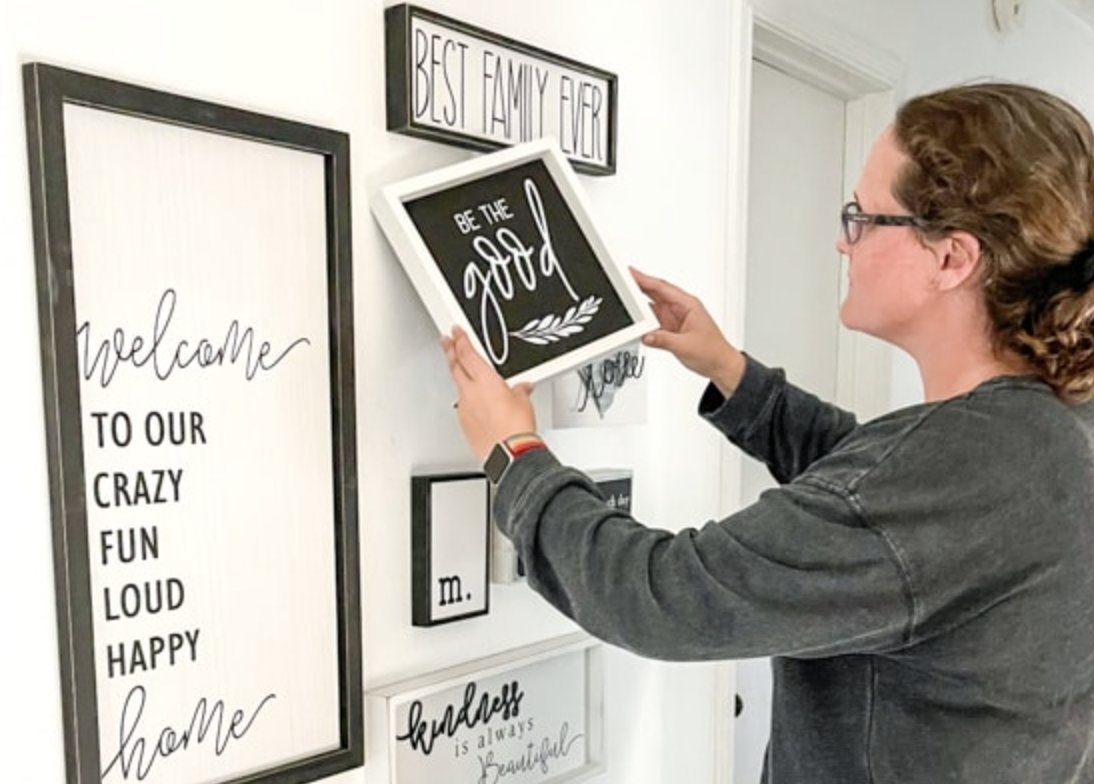 welcome
TO OUR
CRAZY
FUN
LOUD
HAPPY
home
BEST FAMILY EVER
BE THE
good
m.
kindness
is always
Beautiful